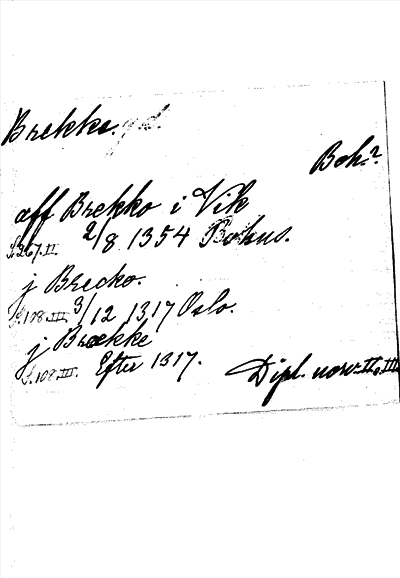 Brekke. gd.
Boh.?
aff Brekko i Vik
S.267.II. 2/8 1354 Bohus.
j Brecko.
S.108.III. 3/12 1317 Oslo.
j Brække
S.108.III. Efter 1317.
Dipl. norv. II, III